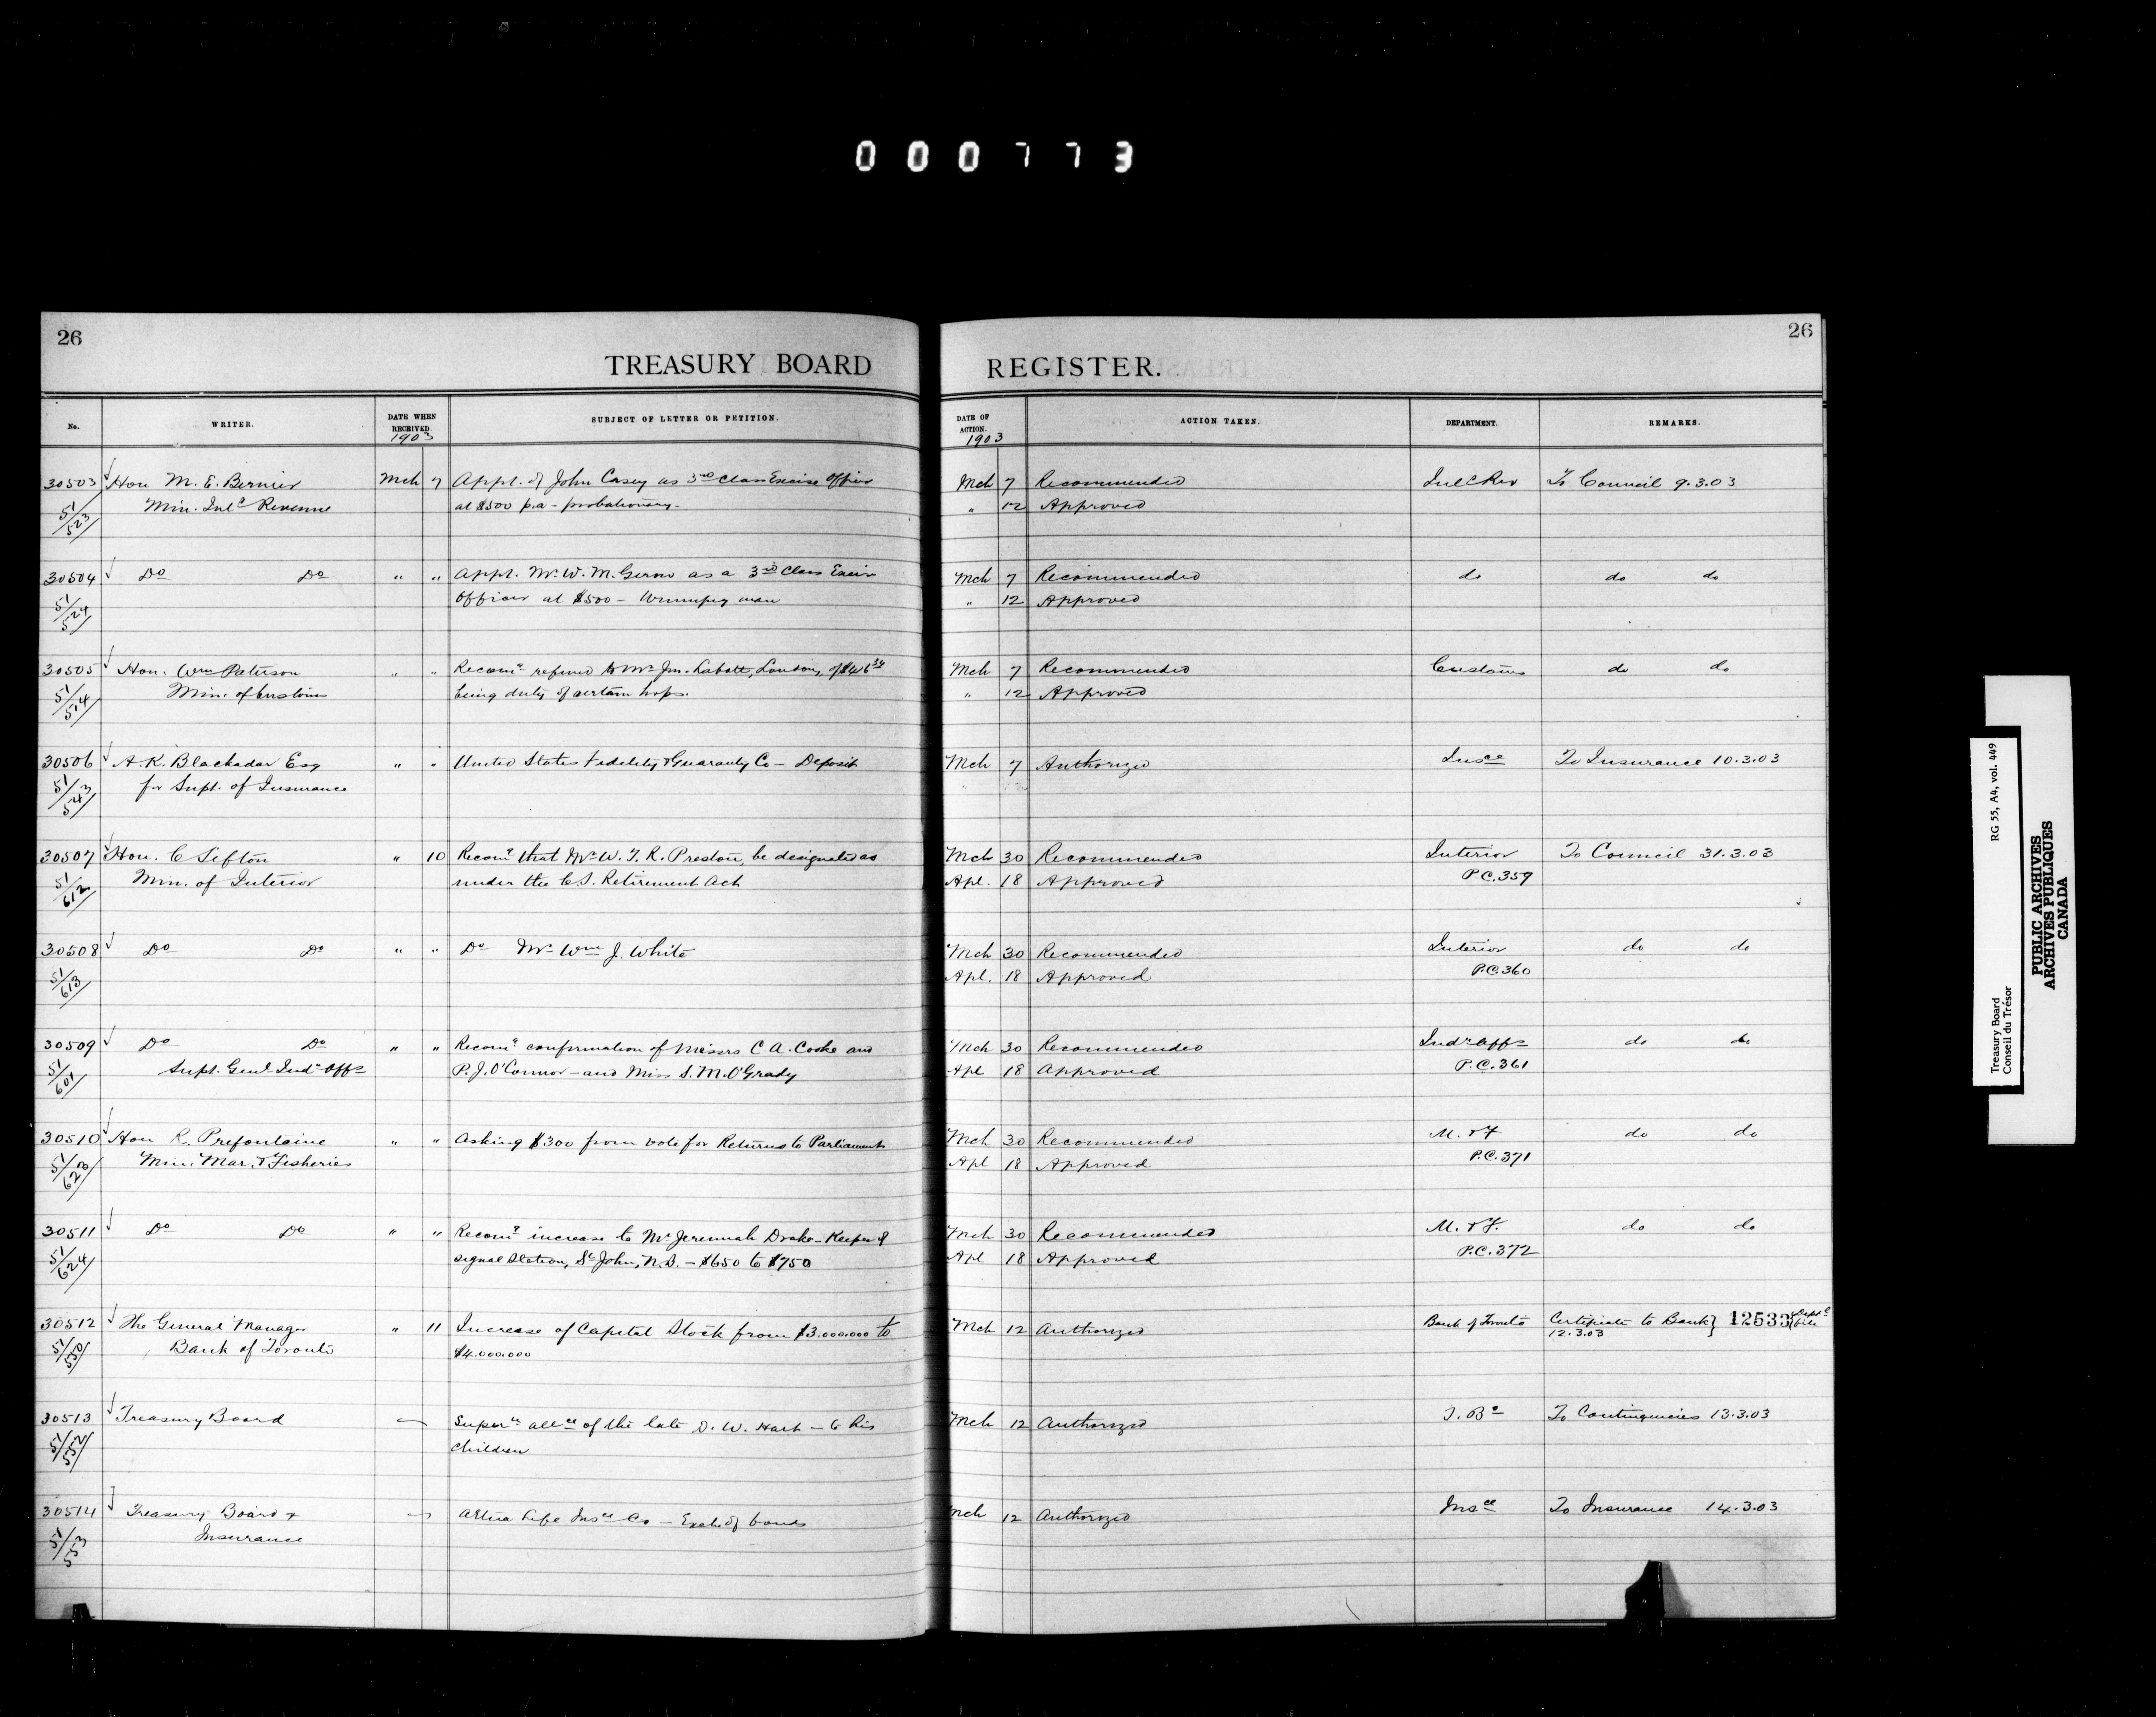 000773
26
TREASURY BOARD
REGISTER.
26
No.
WRITER.
DATE WHEN RECEIVED.
1903
SUBJECT OF LETTER OR PETITION.
DATE OF ACTION.
1903
ACTION TAKEN.
DEPARTMENT.
REMARKS.
30503 Hon M. E. Bernier Mch 7 Appt. of John Casey as 3rd Class Excise Officer Mch 7 Recommended Inl C Rev To Council 9.3.03
51/523 Min. Inl C Revenue at $500 p.a - probationary. " 12 Approved
30504 Do Do " " Appt. Mr W. M. Gerow as a 3rd Class Excise Mch 7 Recommended do do do
51/524 Officer at $500 - Winnipeg man " 12 Approved
30505 Hon. Wm Paterson " " Recomg refund to Mr Jno. Labatt, London, of $46 34 Mch 7 Recommended Customs do do
51/514 Min. of Customs being duty of certain hops. " 12 Approved
30506 A. K. Blackadar Esq " " United States Fidelity & Guaranty Co - Deposit Mch 7 Authorized Insce To Insurance 10.3.03
51/543 for Supt. of Insurance
30507 Hon. C Sifton " 10 Recomg that Mr W. T. R. Preston, be designated as Mch 30 Recommended Interior To Council 31.3.03
51/612 Min. of Interior under the C.S. Retirement Act Apl. 18 Approved P.C. 359
30508 Do Do " " Do Mr Wm J. White Mch 30 Recommended Interior do do
51/613 Apl. 18 Approved P.C. 360
30509 Do Do " " Recomg confirmation of Messrs C A. Cooke and Mch 30 Recommended Indn Affs do do
51/601 Supt. Genl Indn Affs P. J. O'Connor - and Miss S. M. O'Grady Apl 18 Approved P.C. 361
30510 Hon R. Prefontaine " " Asking $300 from vote for Returns to Parliament Mch 30 Recommended M. & F do do
51/623 Min. Mar. & Fisheries Apl 18 Approved P.C. 371
30511 Do Do " " Recomg increase to Mr Jeremiah Drake - Keeper of Mch 30 Recommended M. & F. do do
51/624 signal Station, St John, N.B. - $650 to $750 Apl 18 Approved P.C. 372
30512 The General Manager " 11 Increase of Capital Stock from $3.000.000 to Mch 12 Authorized Bank of Toronto Certificate to Bank } 12533 { Dept'l file
51/550 Bank of Toronto $4.000.000 12.3.03
30513 Treasury Board Super'n all'ce of the late D. W. Hart - to his Mch 12 Authorized T. Bd To Contingencies 13.3.03
51/552 children
30514 Treasury Board & Aetna Life Insce Co - Exch. of bonds Mch 12 Authorized Insce To Insurance 14.3.03
51/553 Insurance
Treasury Board RG 55, A4, vol. 449
Conseil du Trésor
PUBLIC ARCHIVES
ARCHIVES PUBLIQUES
CANADA